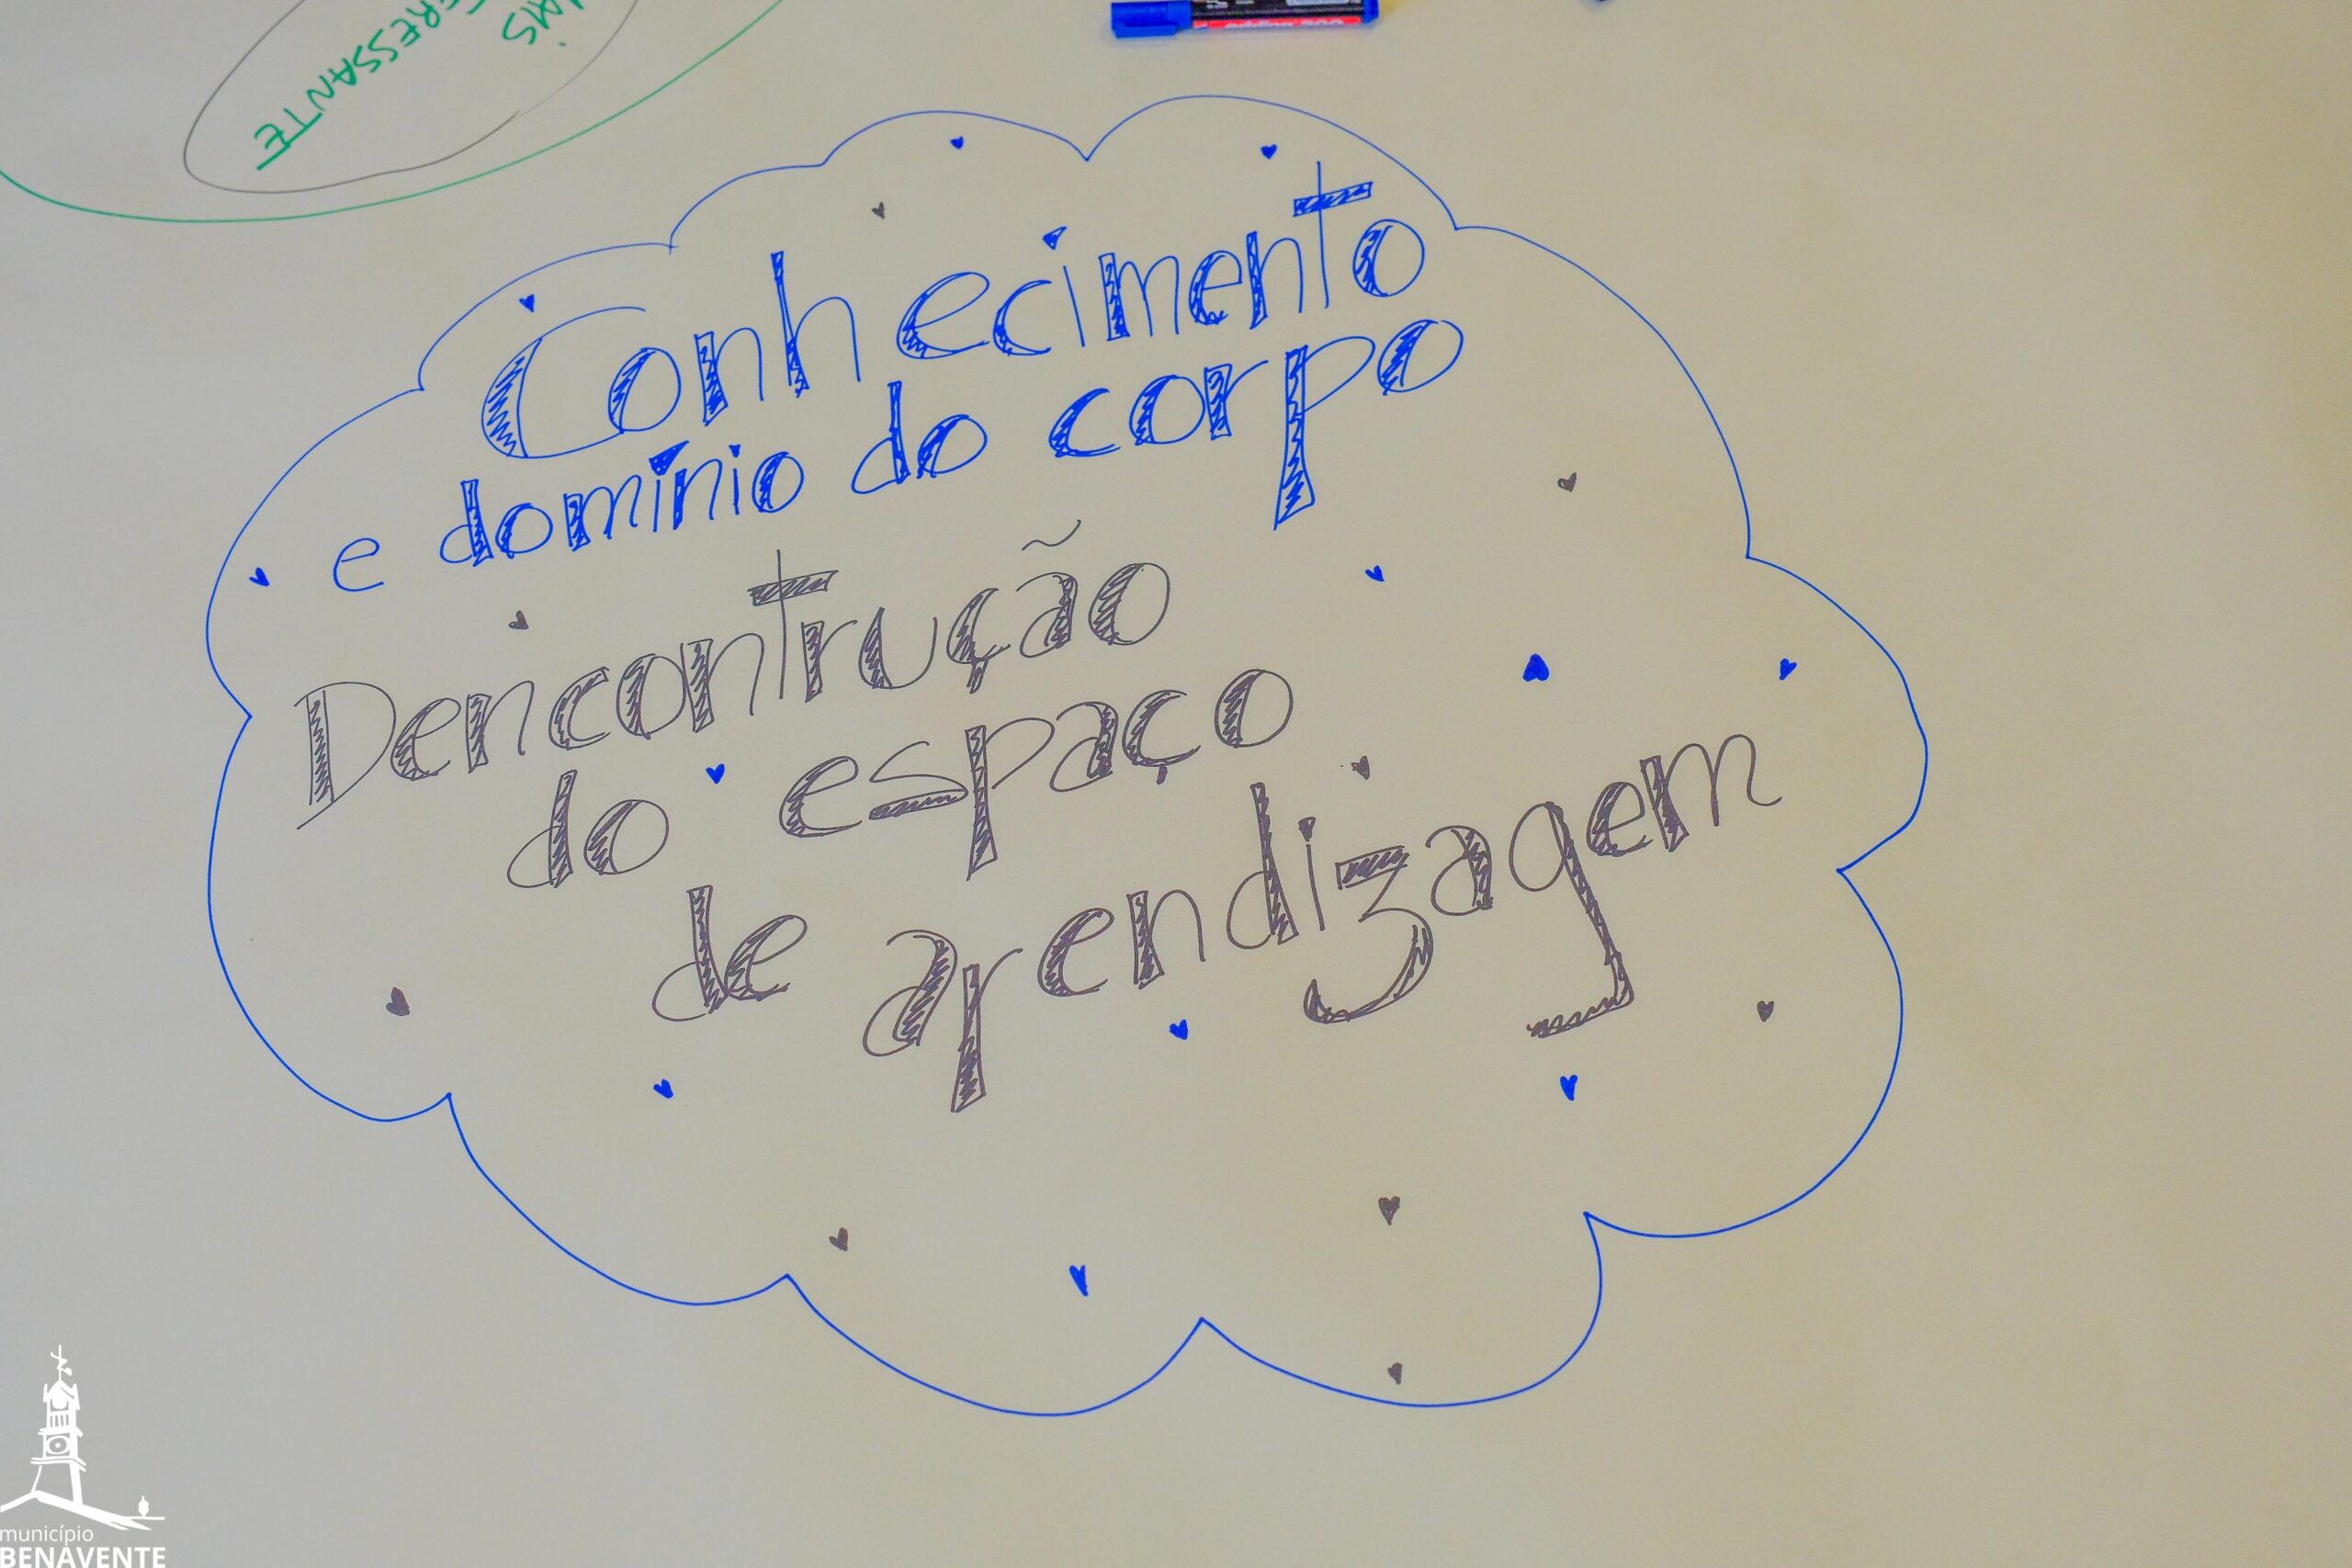 MAIS
ERESSANTE
Conhecimento
e domínio do corpo
Dencontrução
do espaço
de arendizagem
município
BENAVENTE